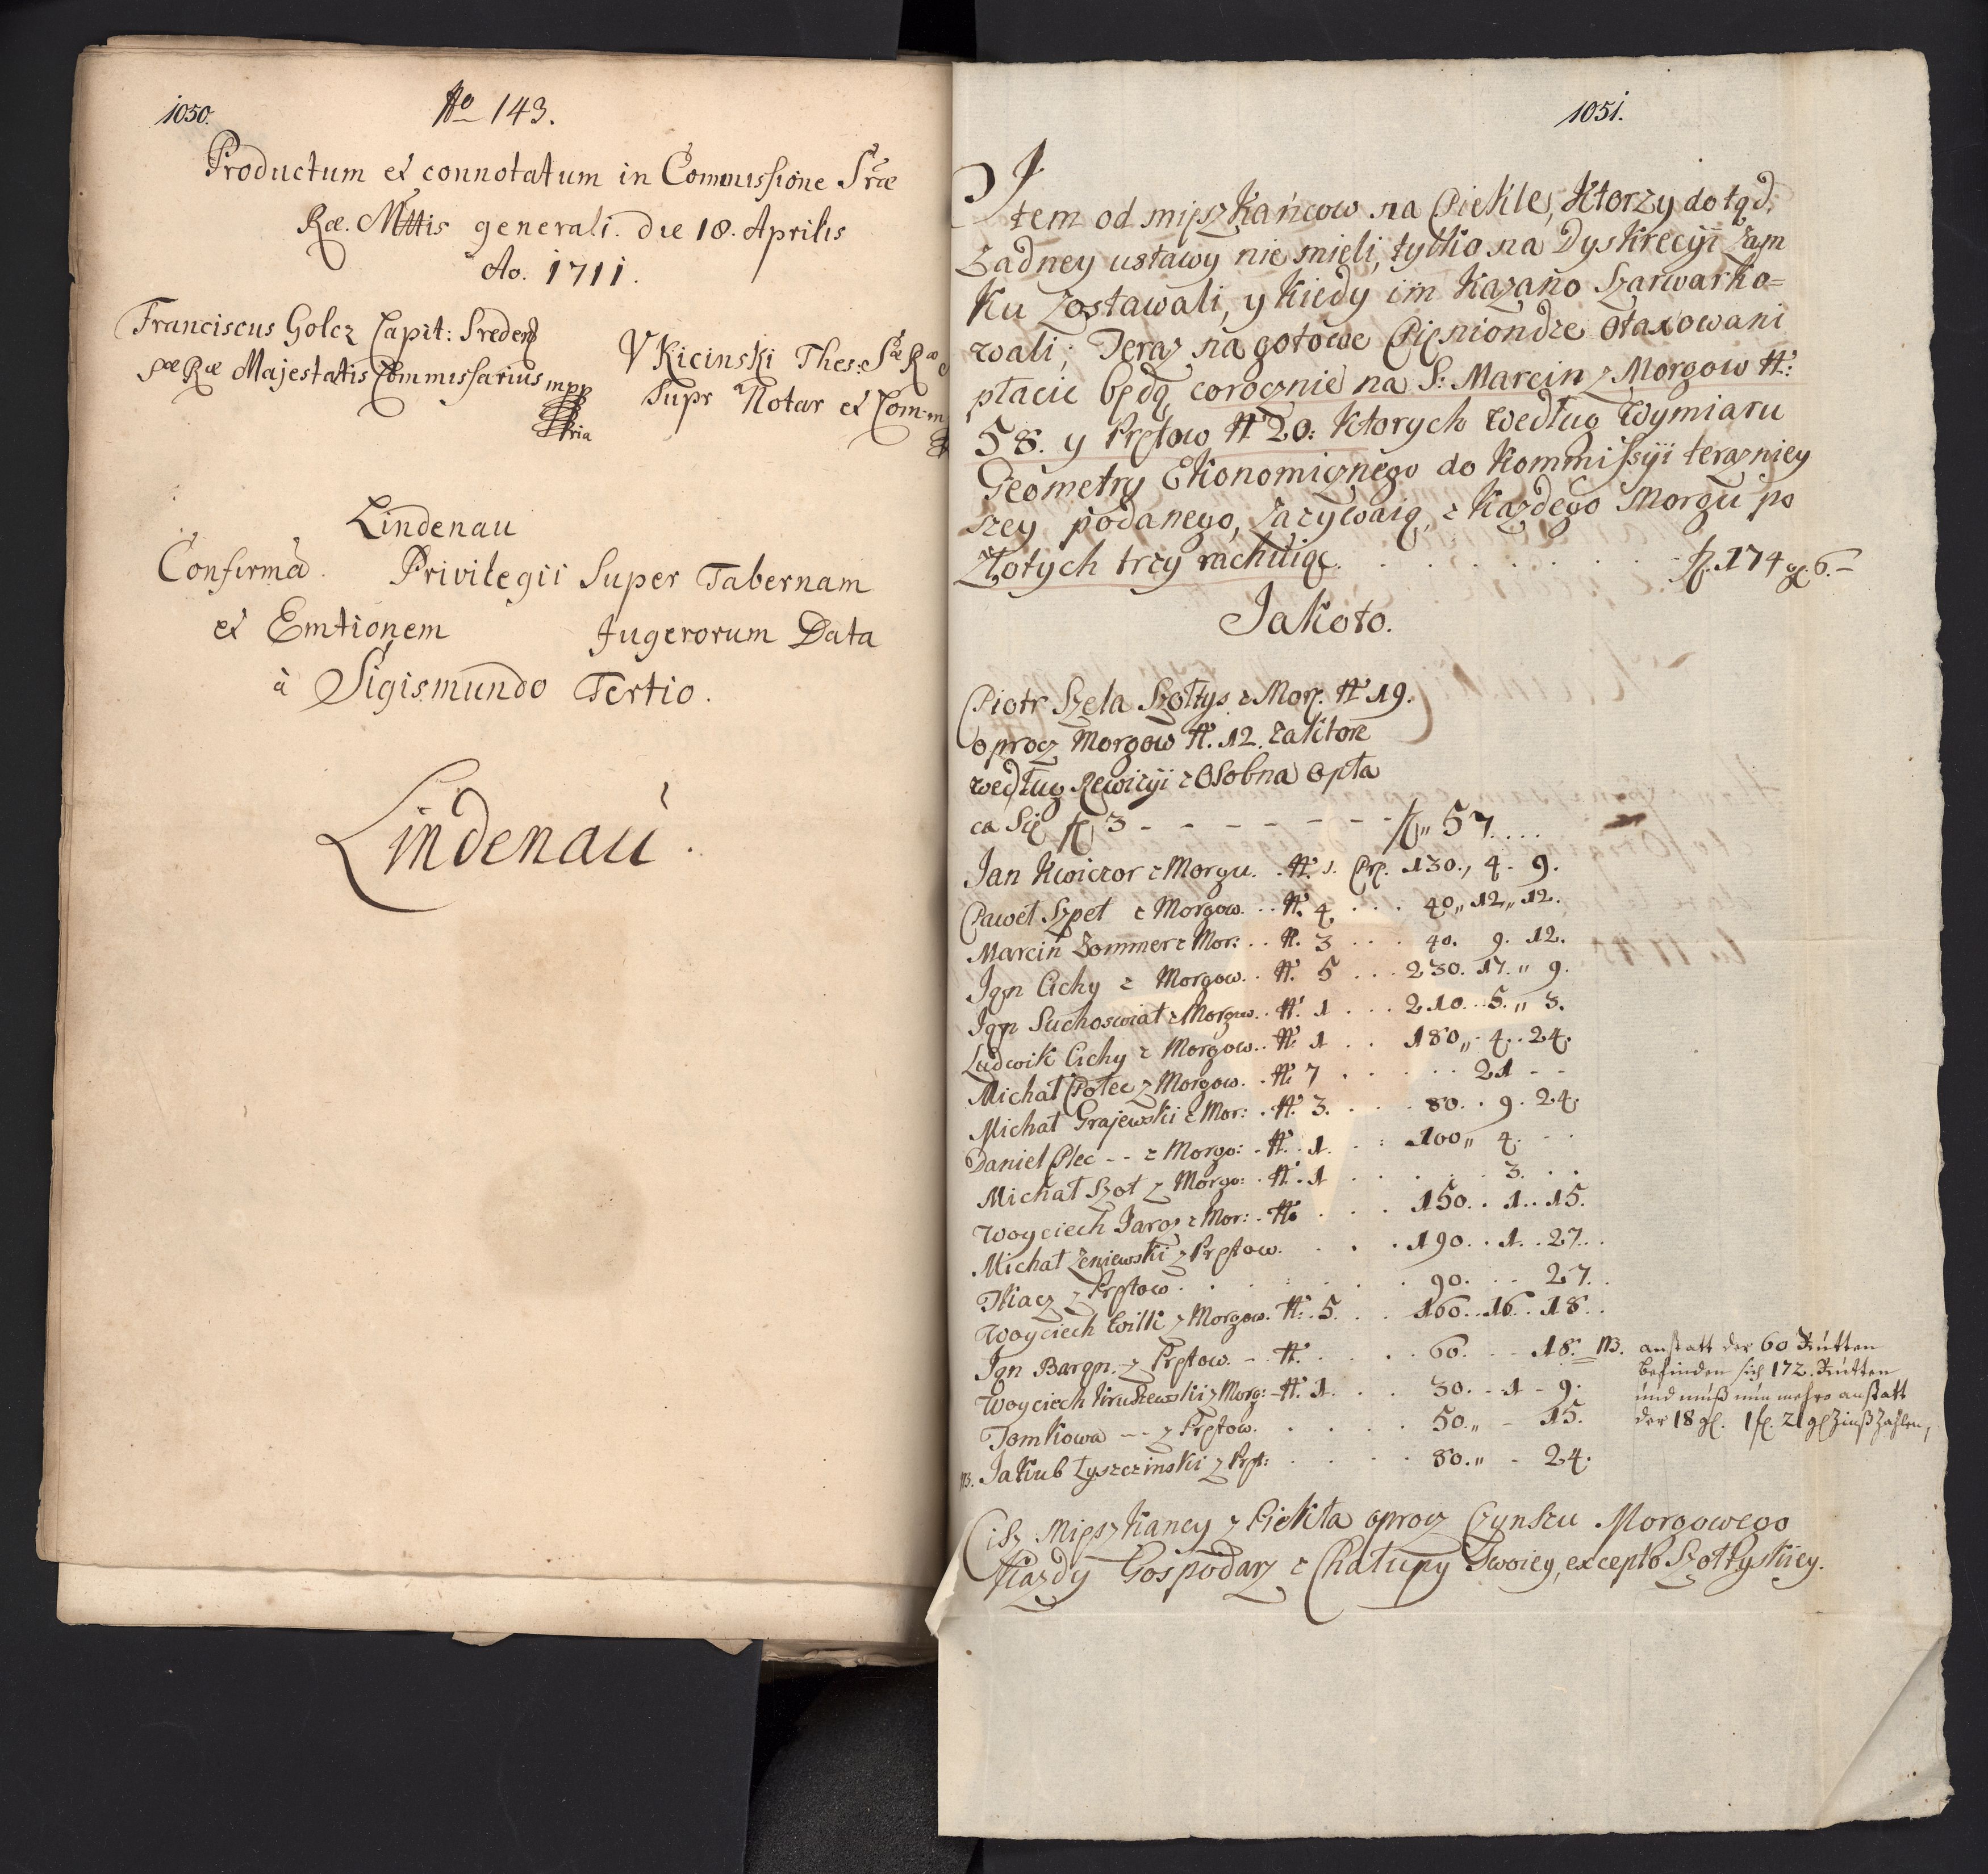 1050.
No 143.
Productum et connotatum in Commissione Sræ
Ræ. Mttis generali. die 18. Aprilis
Ao. 1711.
Franciscus Golcz Capit: Sreden
Ræ Majestatis Commissarius mpp
ria
V Kicinski Thes: Sæ Ræ
Supr Notar et Com-m
Lindenau
Confirma. Privilegii Super Tabernam
et Emtionem Jugerorum Data
à Sigismundo Tertio.
Lindenau.
1051.
Item od mięszkańcow na Piekle, Ktorzy do tąd,
Zadney ustawy nie mieli, tylko na Dyskrecyi Zam
Ku zostawali, y Kiedy im Kazano Szarwarko=
wali; Teraz na gotowe Pięniondze otaxowani
płacić będą, corocznie na S: Marcin z Morgow N:
58. y Prętow N 20: Ktorych według Wymiaru
Geometry Ekonomicznego do Kommissyi terazniey
szey podanego, zazywaią, z Kazdego Morgu po
Złotych trzy rachuiąc. . . . . . . . fl. 174 gl. 6.–
Jakoto.
Piotr Szela Szołtys z Morg. N 19.
oprocz Morgow N. 12. zaktore
według Rewizyi z Osobna opła
ca Się fl 3 - - - - - - - - fl„ 57. . . .
Jan Kwiczor z Morgu. . N. 1. Prę. 130., 4 - 9.
Paweł Szpet z Morgow. . . N. 4 . . . 40„ 12„ 12.
Marcin Zommer z Mor: . . N. 3 . . . 40. 9. 12.
Jgn Cichy z Morgow. . N. 5 . . . 230. 17. „ 9.
Jgn Suchoswiat z Morgow. . N. 1 . . . 210. . 5. „ 3.
Ludwik Cichy z Morgow. . N. 1 . . 180„ - 4. . 24.
Michał Połec z Morgow. . N. 7 . . . . . 21 - -
Michał Grajewski z Mor: . N. 3. . . . 80. . 9. 24.
Daniel Plec - - z Morgo: - N. . 1. . : 100„ 4. - .
Michał Szot z Morgo: . N. . 1 . . . . . 3. . .
Woyciech Jarosz z Mor: . No . . . 150. . 1. . 15.
Michał Zeniewski z Prętow. . . . 190. . 1. . 27. .
Tkacz z Prętow . . . . . . . 90. . . 27. .
Woyciech Wilk z Morgow. N: . 5. . . 160. . 16. . 18. .
Jgn Bargn. - z Prętow. - . N. . . . . 60. . - 18. NB. anstatt der 60 Rutten
befinden sich 172. Rutten
und muß nun mehro anstatt
der 18 gl. 1 fl. 21 gl Zinß Zahlen,
Woyciech Kruszewski z Morg: - N. 1. . . 30. - 1 - 9.
Tomkowa - - - z Prętow. . . . . 50. „ - 15.
NB. Jakub Łyszczinski z Prę: . . . . 80. „ - 24.
Cisz Mięszkancy z Piekła oprocz Czynszu Morgowego
Kazdy Gospodarz z Chałupy Swoiey, excepto Szołtyskiey.